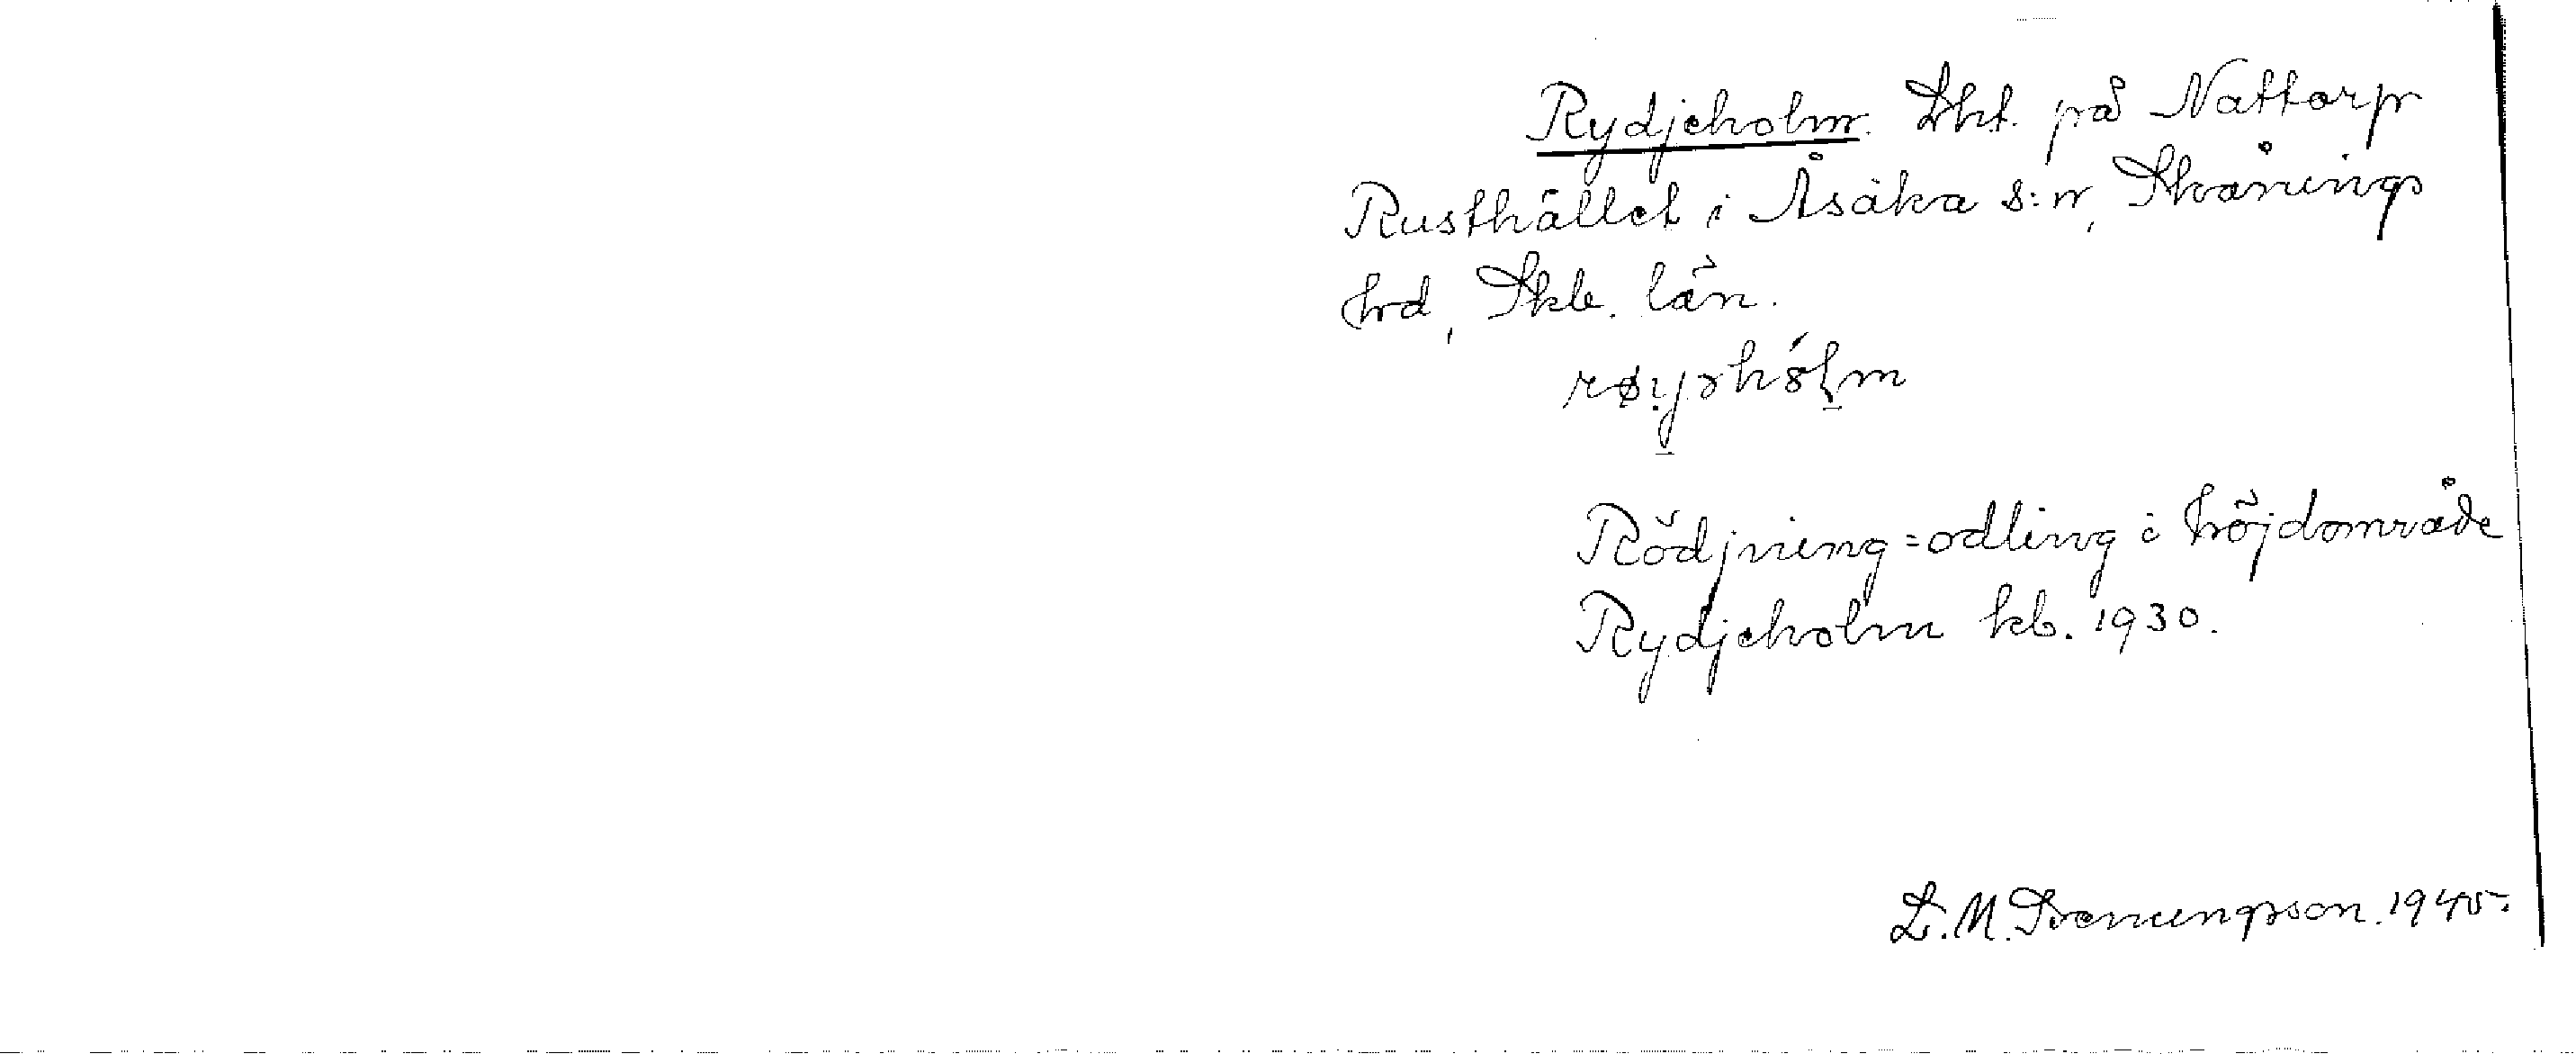 Rydjeholm. Lht. på Nattorp
Rusthållet i Åsåka s:n, Skånings
hrd, Skb. län.
Rödjning = odling i höjdområde
Rydjeholm kb. 1930.
L. M. Svenungsson. 1945.